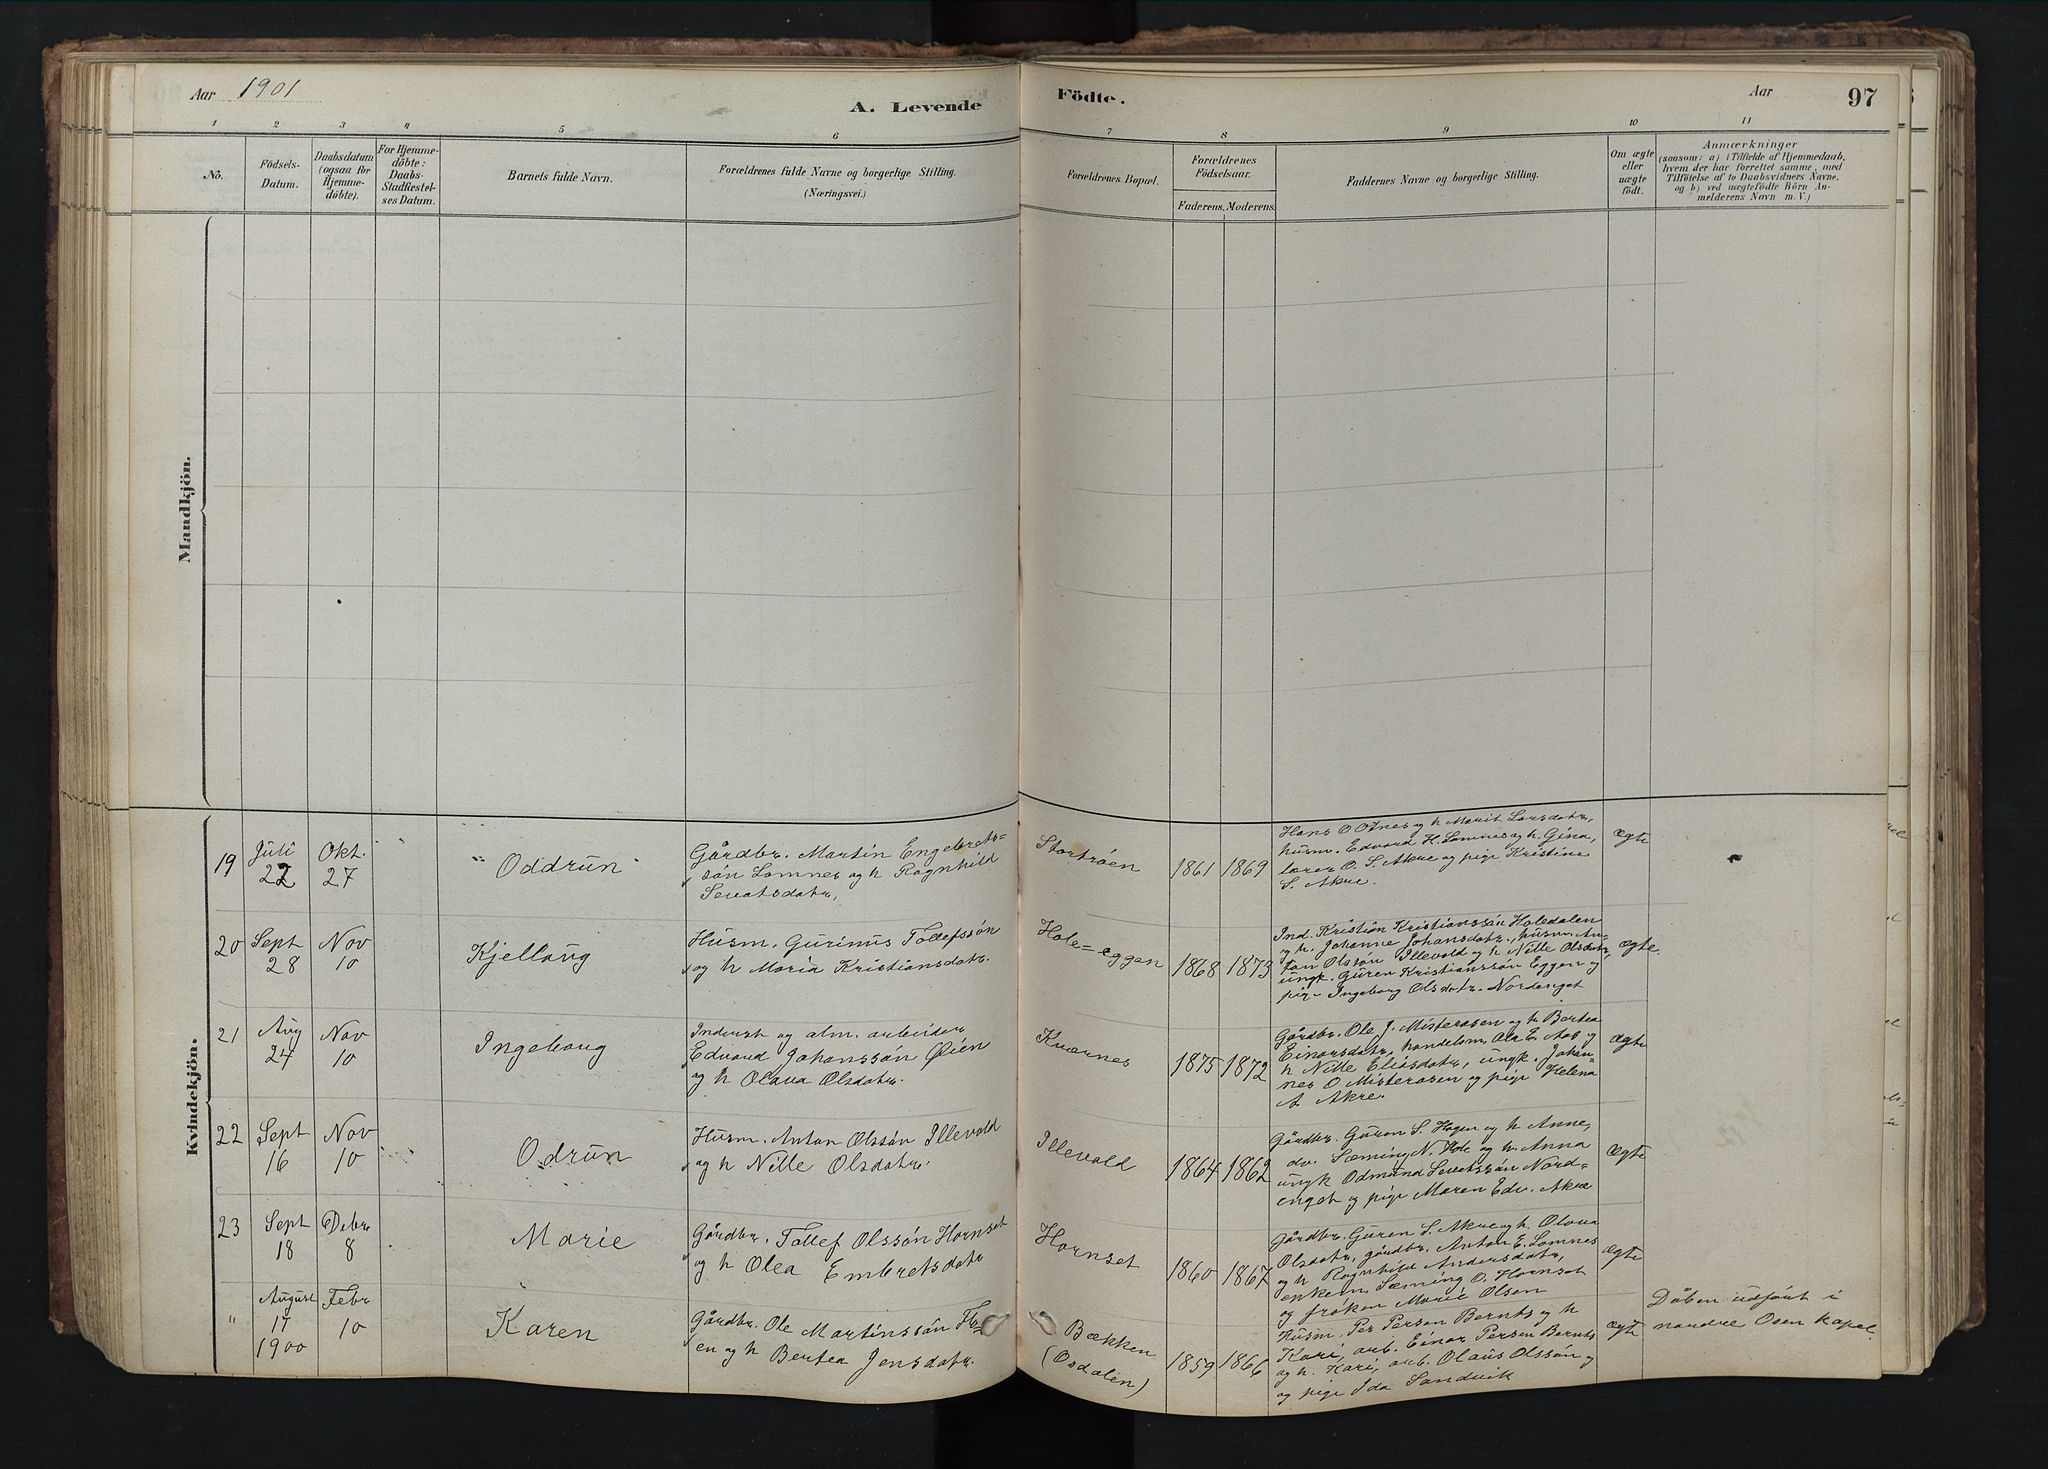 Aar 1901
A. Levende Födte.
Aar
97
1 2 3 4 5 6 7 8 9 10 11
No.
Födsels-
Datum.
Daabsdatum
(ogsaa for
Hjemme-
döbte).
For Hjemme-
döbte:
Daabs-
Stadfæstel-
ses Datum.
Barnets fulde Navn.
Forældrenes fulde Navne og borgerlige Stilling.
(Næringsvei.)
Forældrenes Bopæl.
Forældrenes
Födselsaar.
Faderens. Moderens.
Faddernes Navne og borgerlige Stilling.
Om ægte
eller
uægte
födt.
Anmærkninger
(saasom: a) i Tilfælde af Hjemmedaab,
hvem der har forrettet samme, med
Tilföielse af to Daabsvidners Navne.
og b) ved uægtefödte Börn An-
melderens Navn m. V.)
Mandkjön.
Kvindekjön.
19
Juli
22
Okt.
27
Oddrun
Gårdbr. Martin Engebrets=
søn Lomnes og h Ragnhild
Sevatsdatr.
Stortrøen
1861 1869
Hans O Otnes og h Marit Larsdatr,
husm. Edvard H. Lomnes og h. Gina,
lærer O. S. Akre og pige Kristine
S. Akre.
ægte
20
Sept
28
Nov
10
Kjellaug
Husm. Gurinus Tollefssøn
og h Maria Kristiansdatr.
Hole=eggen
1868 1873
Ind. Kristian Kristianssøn Holedalen
og h. Johanne Johansdatr., husm. An-
ton Olssøn Illevold og h Nille Olsdatr,
ungk. Guren Kristianssøn Eggen og
pige Ingeborg Olsdatr. Nordenget
ægte.
21
Aug
24
Nov
10
Ingeborg
Inderst og alm. arbeider
Edvard Johanssøn Øien
og h Olava Olsdatr.
Kværnes
1875 1872
Gårdbr. Ole J. Misterosen og h Bertea
Einarsdatr, handelsm. Ole E. Aas og
h Nille Eliasdatr, ungk. Johan-
nes O Misterosen og pige Helena
A Akre.
ægte
22
Sept
16
Nov
10
Odrun
Husm. Anton Olssøn Illevold
og h Nille Olsdatr.
Illevold
1864 1862
Gårdbr. Guren S. Hagen og h Anne,
do. Sæming N. Hole og h. Anna
ungk Odmund Sevatssøn Nord-
enget og pige Maren Edv. Akre
ægte
23
Sept
18
Debr
8
Marie
Gårdbr. Tollef Olssøn Hornset
og h Olea Embretsdatr
Hornset
1860 1867
Gårdbr. Guren S. Akre og h. Olava
Olsdatr, gårdbr. Anton E. Lomnes
og h Ragnhild Andersdatr,
enkem. Sæming O. Hornset
og frøken Marie Olsen
ægte
"
August
17
1900
Febr
10
Karen
Gårdbr. Ole Martinssøn
en og h Bertea Jensdatr.
Bækken
(Osdalen)
1859 1866
Husm. Per Persen Bernts og h
Kari, arb. Einar Persen Bernts
og h. Kari, arb. Olaus Olssøn og
og pige Ida Sandvik
ægte
Dåben udført i
nordre Osen kapel.